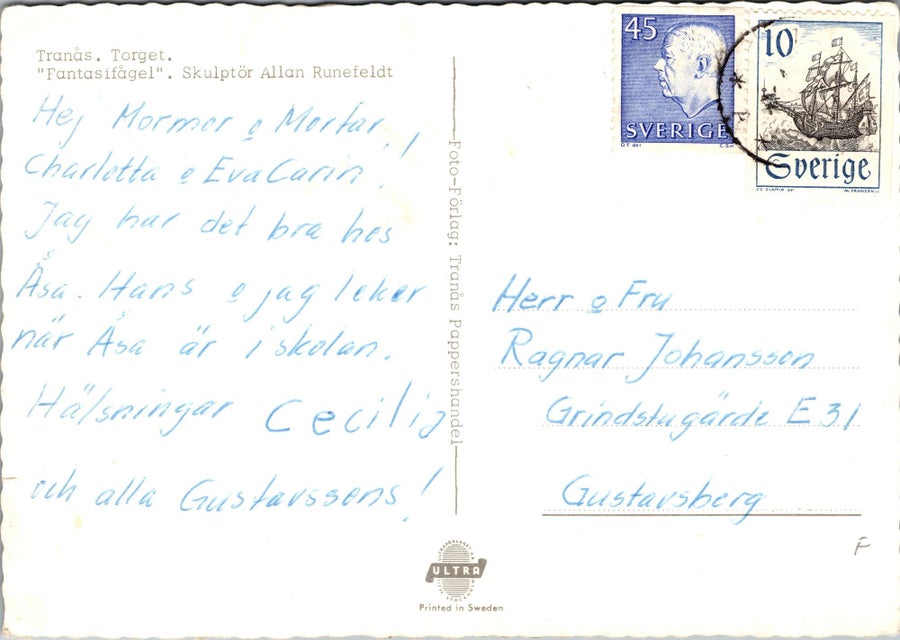 Tranås. Torget.
"Fantasifågel". Skulptör Allan Runefeldt
Hej Mormor o Morfar!
Charlotta o Eva Carin!
Jag har det bra hos
Åsa. Hans o jag leker
när Åsa är i skolan.
Hälsningar Cecilia
och alla Gustavssons!
Foto-Förlag: Tranås Pappershandel
45
SVERIGE
10
Sverige
M. FRANZEN SC
Herr o Fru
Ragnar Johansson
Grindstugärde E 31
Gustavsberg
F
ULTRA
Printed in Sweden